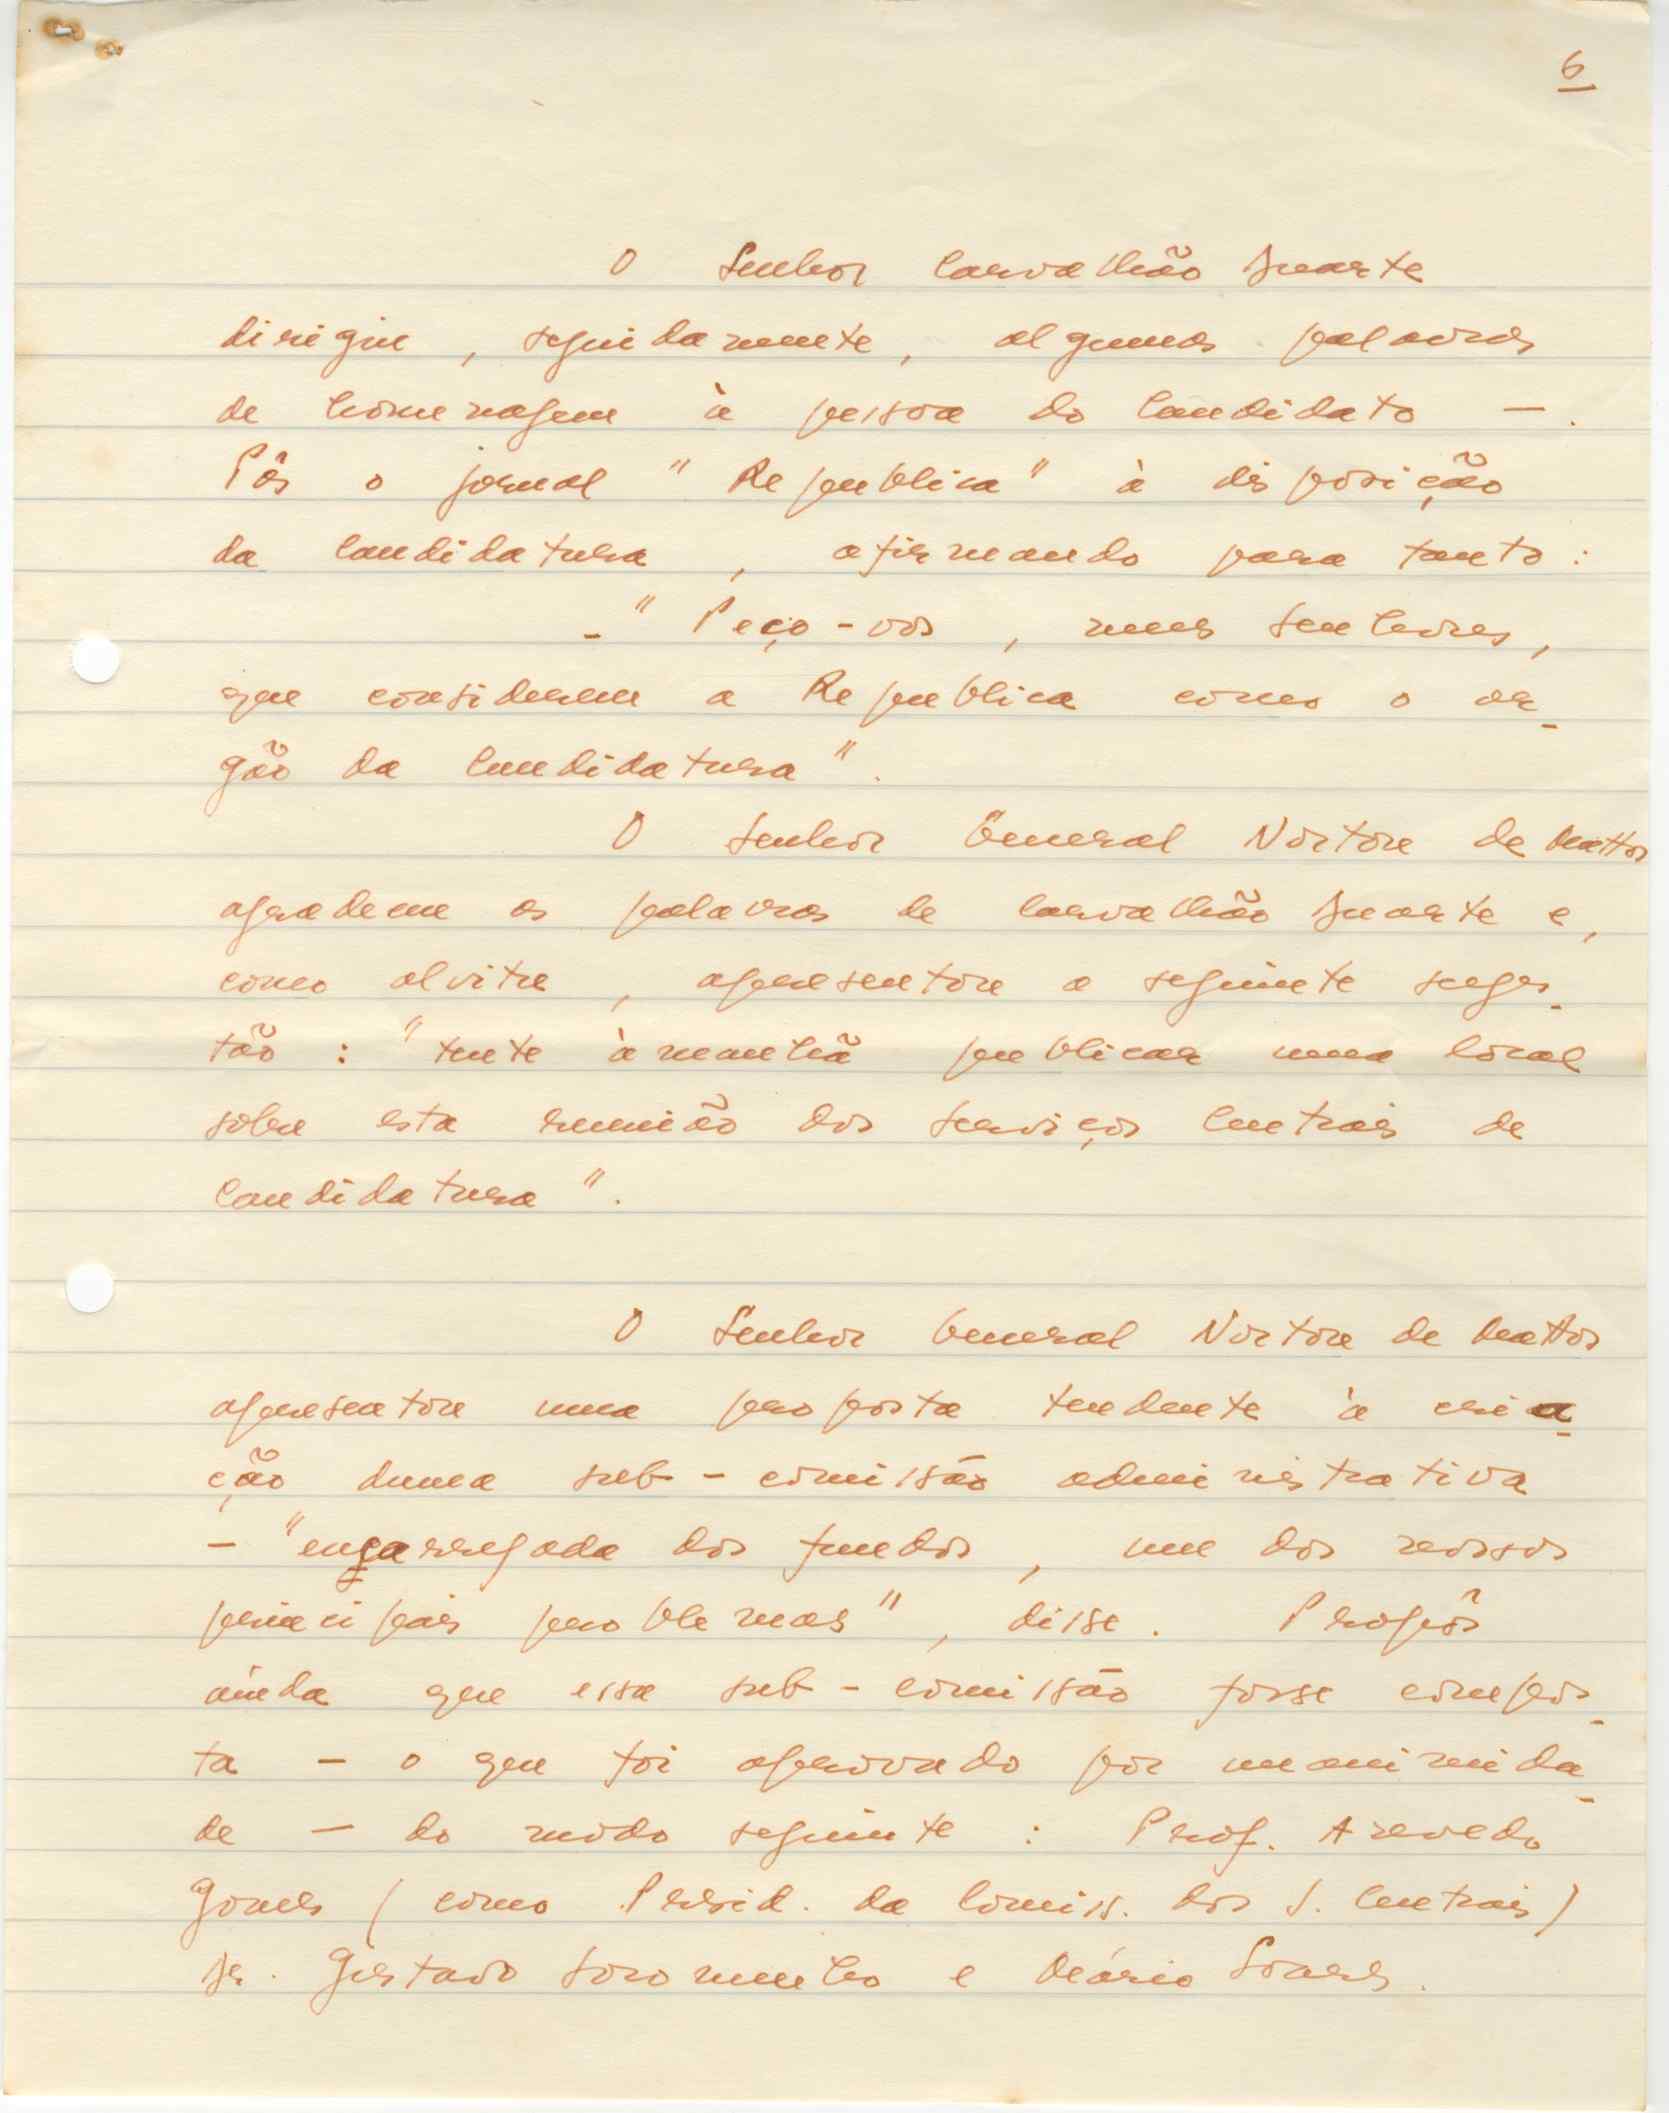 6
O Senhor Carvalhão Duarte
dirigiu, seguidamente, algumas palavras
de homenagem à pessoa do Candidato —.
Pôs o jornal "Republica" à disposição
da Candidatura, afirmando para tanto:
- "Peço-vos, meus Senhores,
que considerem a Republica como o or-
gão da Candidatura".
O Senhor General Norton de Mattos
agradeceu as palavras de Carvalhão Duarte e,
como alvitre, apresentou a seguinte suges-
tão: "tente àmanhã publicar uma local
sobre esta reunião dos Serviços Centrais de
Candidatura".
O Senhor General Norton de Mattos
apresentou uma proposta tendente à cria-
ção duma sub-comissão administrativa
- "encarregada dos fundos, um dos nossos
principais problemas", disse. Propôs
ainda que essa sub-comissão fosse compos-
ta — o que foi aprovado por unanimida-
de — do modo seguinte: Prof. Azevedo
Gomes (como Presid. da Comiss. dos S. Centrais)
Dr. Gustavo Soromenho e Mário Soares.